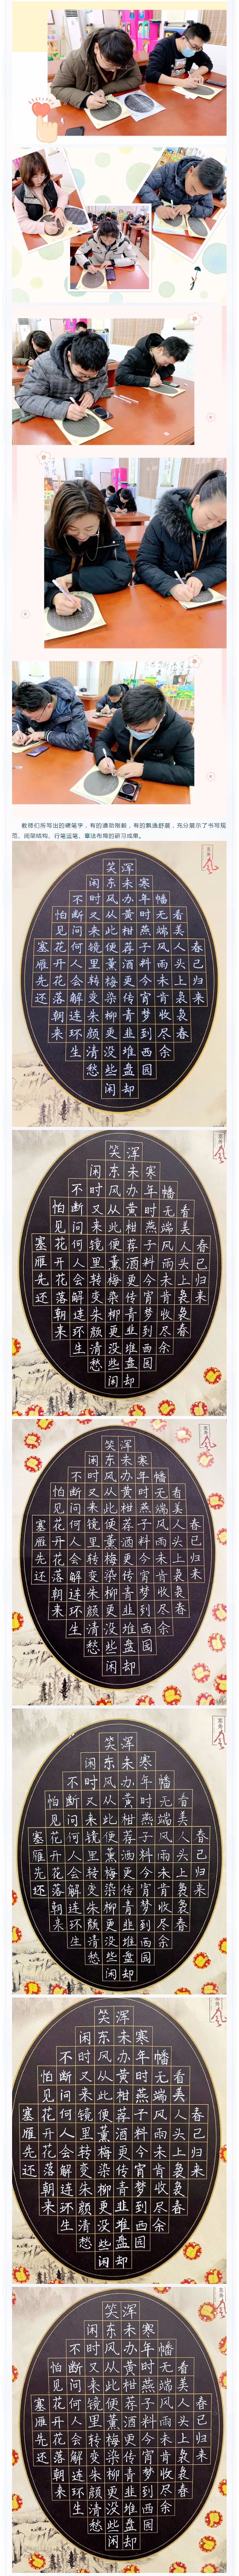 教师们所写出的硬笔字，有的遒劲刚毅，有的飘逸舒展，充分展示了书写规
范、间架结构、行笔运笔、章法布局的研习成果。
春已归来
看美人头上袅袅春
幡无端风雨未肯收尽余
寒年时燕子料今宵梦到西园
浑未办黄柑荐酒更传青韭堆盘却
笑东风从此便薰梅染柳更没些闲
闲时又来镜里转变朱颜清愁
不断问何人会解连环生
怕见花开花落朝来
塞雁先还
春已归来
看美人头上袅袅春
幡无端风雨未肯收尽余
寒年时燕子料今宵梦到西园
浑未办黄柑荐酒更传青韭堆盘却
笑东风从此便薰梅染柳更没些闲
闲时又来镜里转变朱颜清愁
不断问何人会解连环生
怕见花开花落朝来
塞雁先还
春已归来
看美人头上袅袅春
幡无端风雨未肯收尽余
寒年时燕子料今宵梦到西园
浑未办黄柑荐酒更传青韭堆盘却
笑东风从此便薰梅染柳更没些闲
闲时又来镜里转变朱颜清愁
不断问何人会解连环生
怕见花开花落朝来
塞雁先还
春已归来
看美人头上袅袅春
幡无端风雨未肯收尽余
寒年时燕子料今宵梦到西园
浑未办黄柑荐酒更传青韭堆盘却
笑东风从此便薰梅染柳更没些闲
闲时又来镜里转变朱颜清愁
不断问何人会解连环生
怕见花开花落朝来
塞雁先还
春已归来
看美人头上袅袅春
幡无端风雨未肯收尽余
寒年时燕子料今宵梦到西园
浑未办黄柑荐酒更传青韭堆盘却
笑东风从此便薰梅染柳更没些闲
闲时又来镜里转变朱颜清愁
不断问何人会解连环生
怕见花开花落朝来
塞雁先还
春已归来
看美人头上袅袅春
幡无端风雨未肯收尽余
寒年时燕子料今宵梦到西园
浑未办黄柑荐酒更传青韭堆盘却
笑东风从此便薰梅染柳更没些闲
闲时又来镜里转变朱颜清愁
不断问何人会解连环生
怕见花开花落朝来
塞雁先还